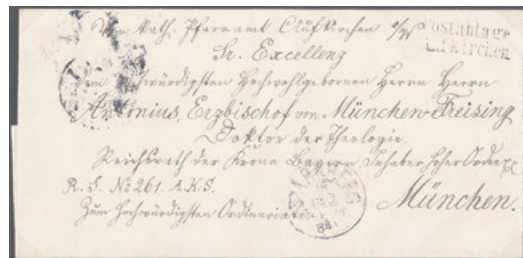 Vom Kath. Pfarramt Aufkirchen a/W
Postablage
Aufkirchen
Sr. Excellenz
Dem Hochwürdigsten Hochwohlgebornen Herrn Herrn
Antonius, Erzbischof von München-Freising
Doktor der Theologie,
Reichsrath der Krone Bayern Inhaber hoher Orden
R. S. No 261. A.K.S.
Zum Hochwürdigsten Ordinariate
München.